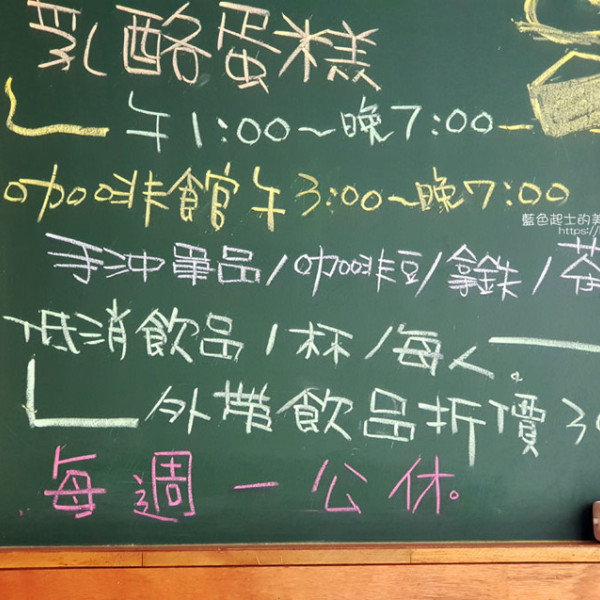 乳酪蛋糕
午1:00~晚7:00
咖啡館午3:00~晚7:00
藍色起士的美
https://
手沖單品/咖啡豆/拿鉄/茶
低消飲品1杯/每人
外帶飲品折價30
每週一公休。